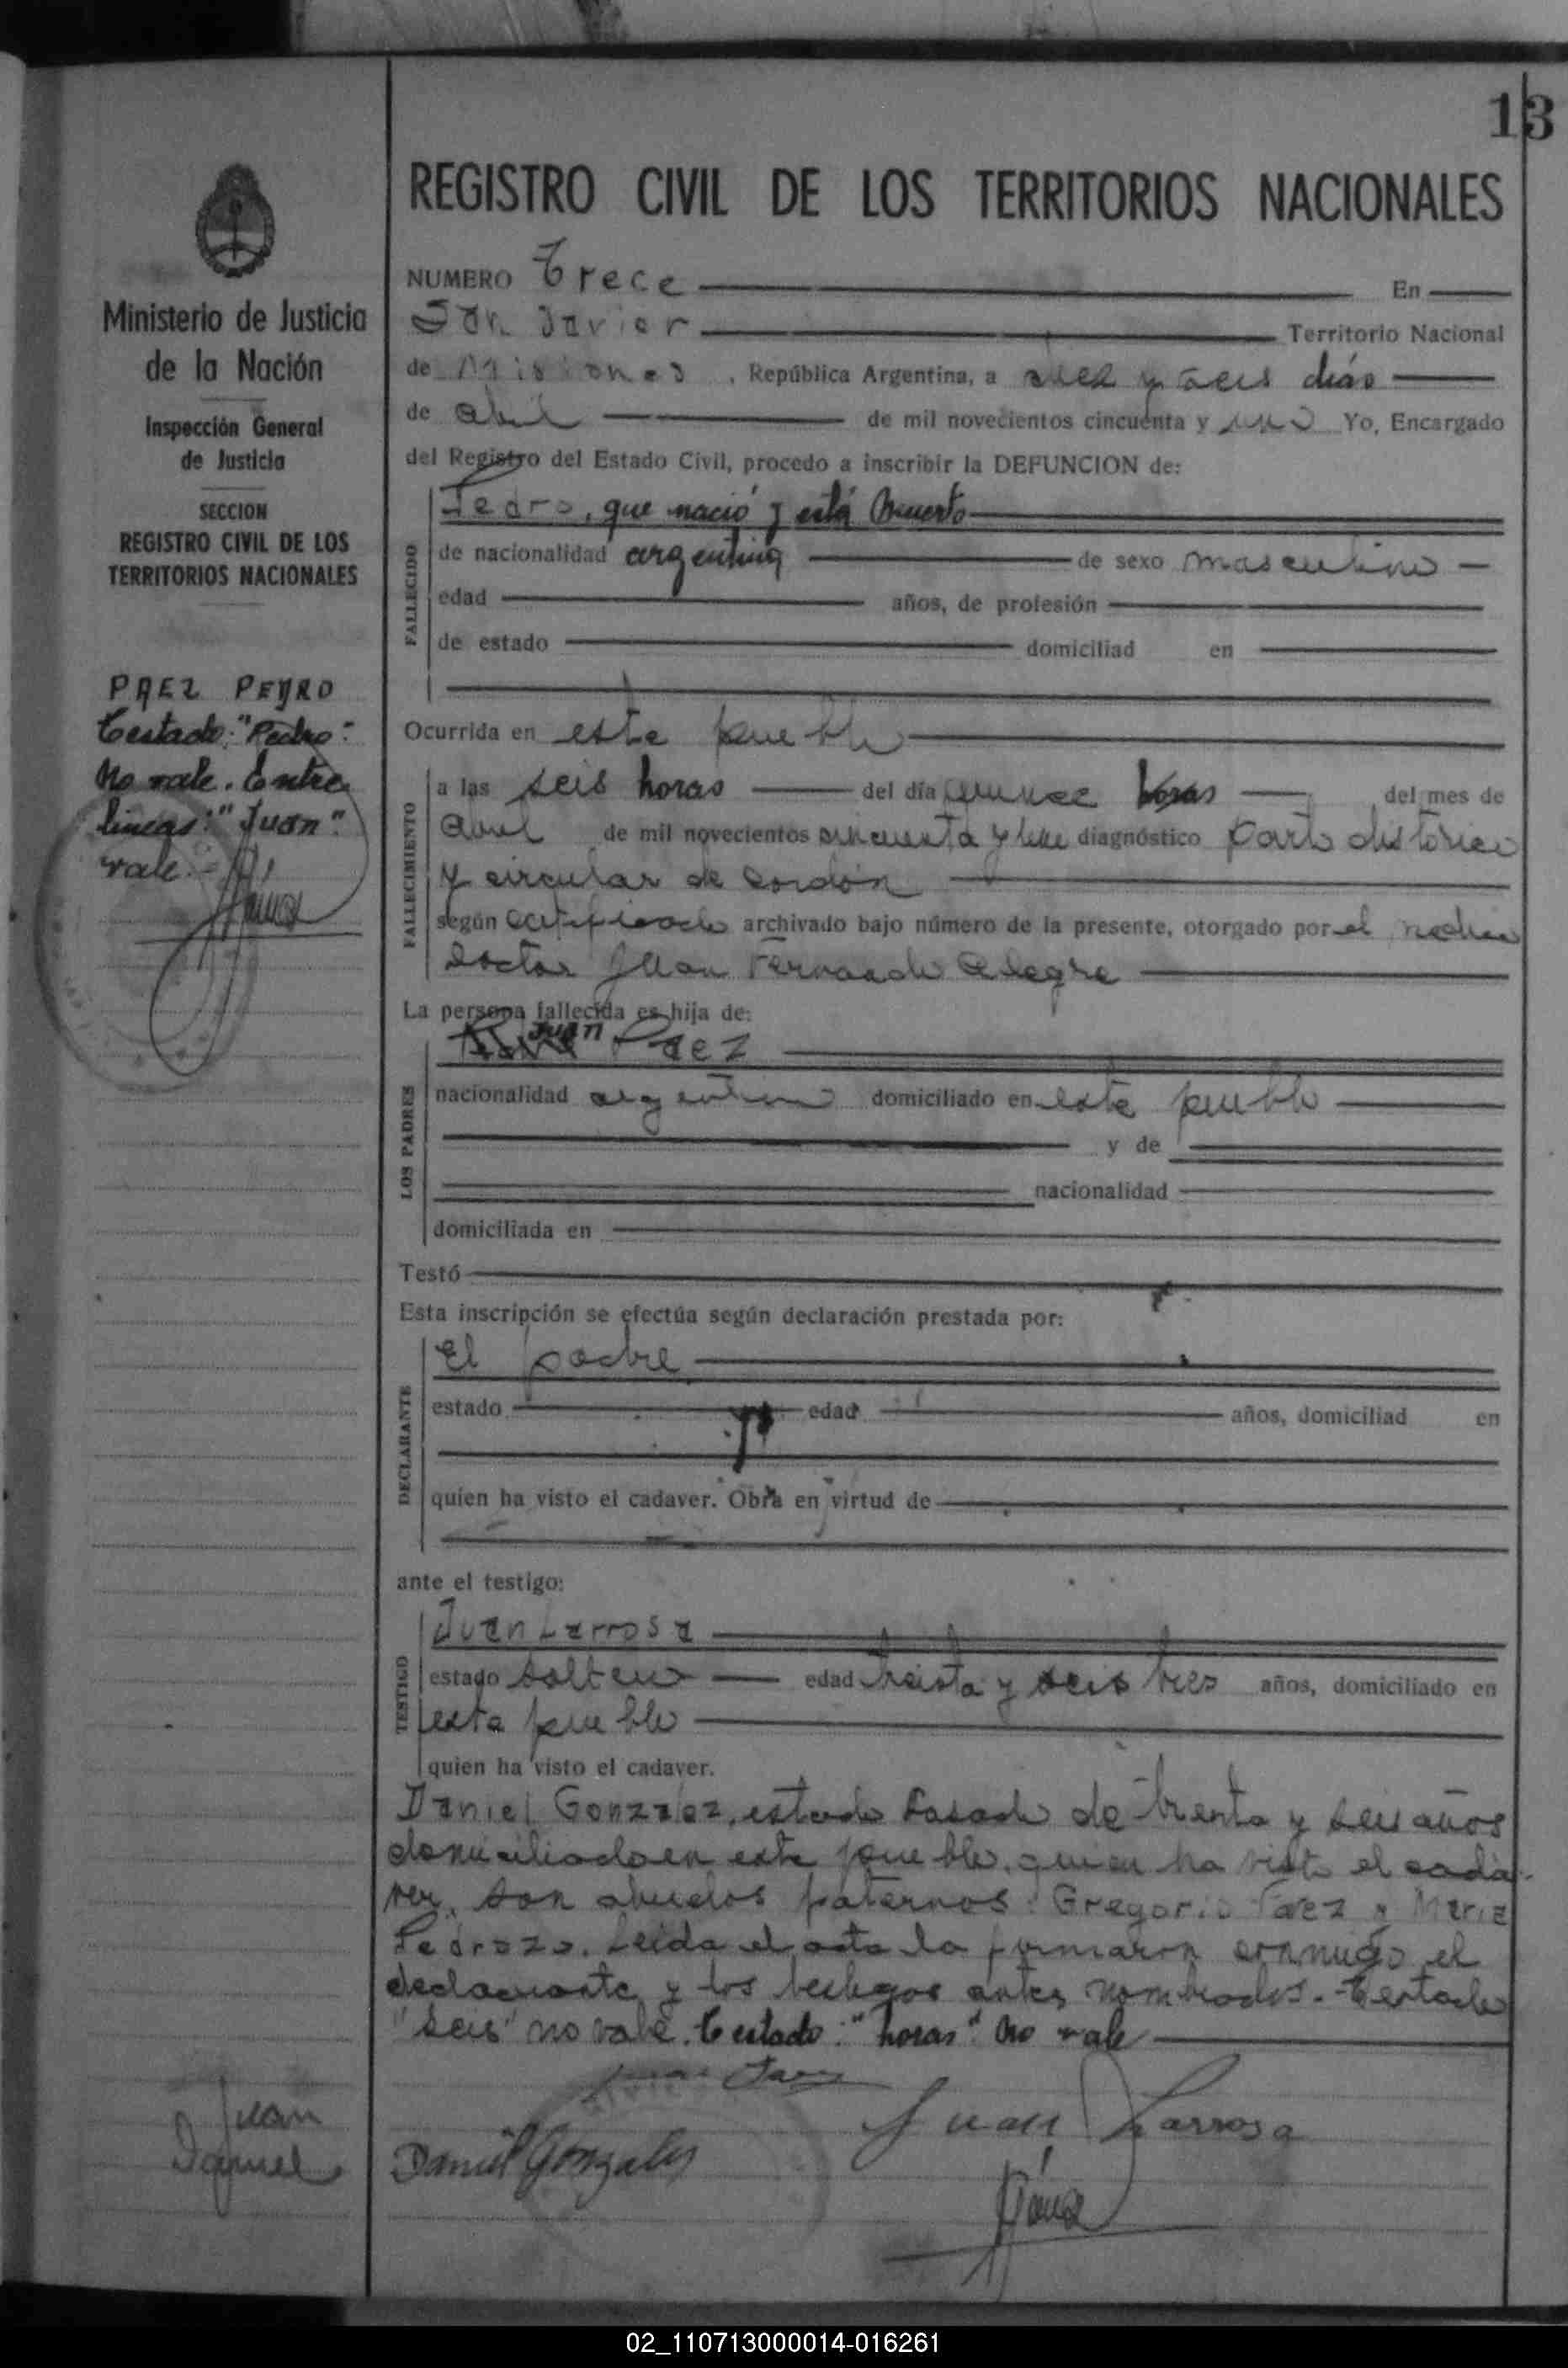 13
REGISTRO CIVIL DE LOS TERRITORIOS NACIONALES
Ministerio de Justicia
de la Nación
Inspección General
de Justicia
SECCION
REGISTRO CIVIL DE LOS
TERRITORIOS NACIONALES
PAEZ PEDRO
Testado: "Pedro":
No vale. Entre
lineas: "Juan".
vale.
NUMERO Trece En
San Javier Territorio Nacional
de Misiones, República Argentina, a diez y seis días
de abril de mil novecientos cincuenta y uno Yo, Encargado
del Registro del Estado Civil, procedo a inscribir la DEFUNCION de:
FALLECIDO
Pedro, que nació y está muerto
de nacionalidad argentina de sexo masculino
edad años, de profesión
de estado domiciliad en
Ocurrida en este pueblo
FALLECIMIENTO
a las seis horas del día quince horas del mes de
abril de mil novecientos cincuenta y diagnóstico parto distósico
y circular de cordón
según certificado archivado bajo número de la presente, otorgado por el médico
doctor Juan Fernando Alegre
La persona fallecida es hija de:
LOS PADRES
Juan Paez
nacionalidad argentino domiciliado en este pueblo
y de
nacionalidad
domiciliada en
Testó
Esta inscripción se efectúa según declaración prestada por:
DECLARANTE
El padre
estado edad años, domiciliad en
quien ha visto el cadaver. Obra en virtud de
ante el testigo:
TESTIGO
Juan Larrosa
estado soltero edad treinta y seis tres años, domiciliado en
este pueblo
quien ha visto el cadaver.
Daniel Gonzalez, estado casado de treinta y seis años
domiciliado en este pueblo, quien ha visto el cadá-
ver. Son abuelos paternos: Gregorio Paez y Maria
Pedrozo. Leída el acta la firmaron conmigo el
declarante y los testigos antes nombrados.- Testado
"seis" no vale. Testado: "horas" No vale
Juan Larrosa
Juan
Daniel
Daniel Gonzalez
02_110713000014-016261